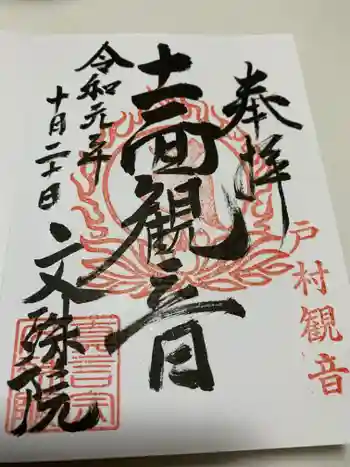 奉拝
戸村観音
十一面観音
令和元年
十月二十日
文殊院